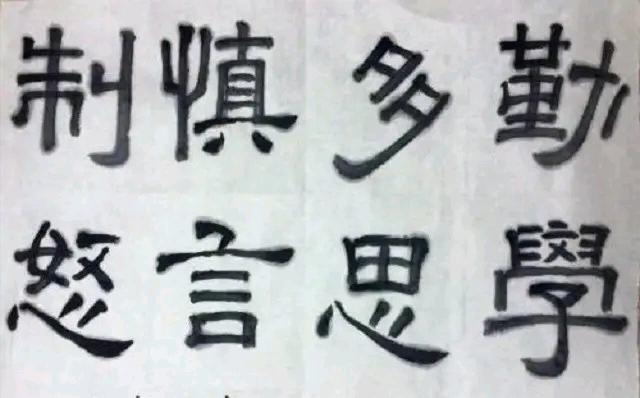 勤學
多思
慎言
制怒